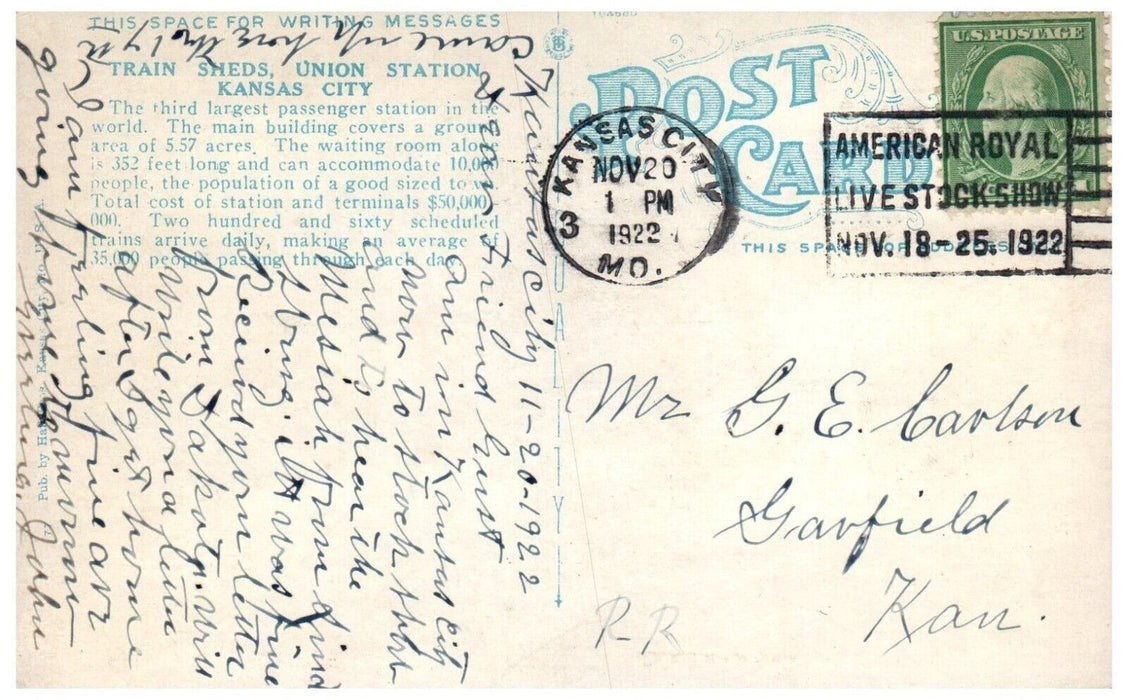 THIS SPACE FOR WRITING MESSAGES
TRAIN SHEDS, UNION STATION,
KANSAS CITY
The third largest passenger station in the
world. The main building covers a ground
area of 5.57 acres. The waiting room alone
is 352 feet long and can accommodate 10,000
people, the population of a good sized town.
Total cost of station and terminals $50,000,
000. Two hundred and sixty scheduled
trains arrive daily, making an average of
35,000 people passing through each day.
Pub. by
POST
CARD
THIS SPACE FOR ADDRESS
U.S. POSTAGE
KANSAS CITY
NOV 20
1 PM
1922
MO.
3
AMERICAN ROYAL
LIVE STOCK SHOW
NOV. 18-25. 1922
Mr G. E. Carlson
Garfield
Kan.
RR
Kansas City 11-20-1922
Friend Gust
Am in Kansas City
now to stock show
and to hear the
Messiah from Lind
sborg. it was fine
Received your letter
from Dakota. Will
Write you a letter
after I get home
I am feeling fine am
going home tomorrow
John
came up here the 17th